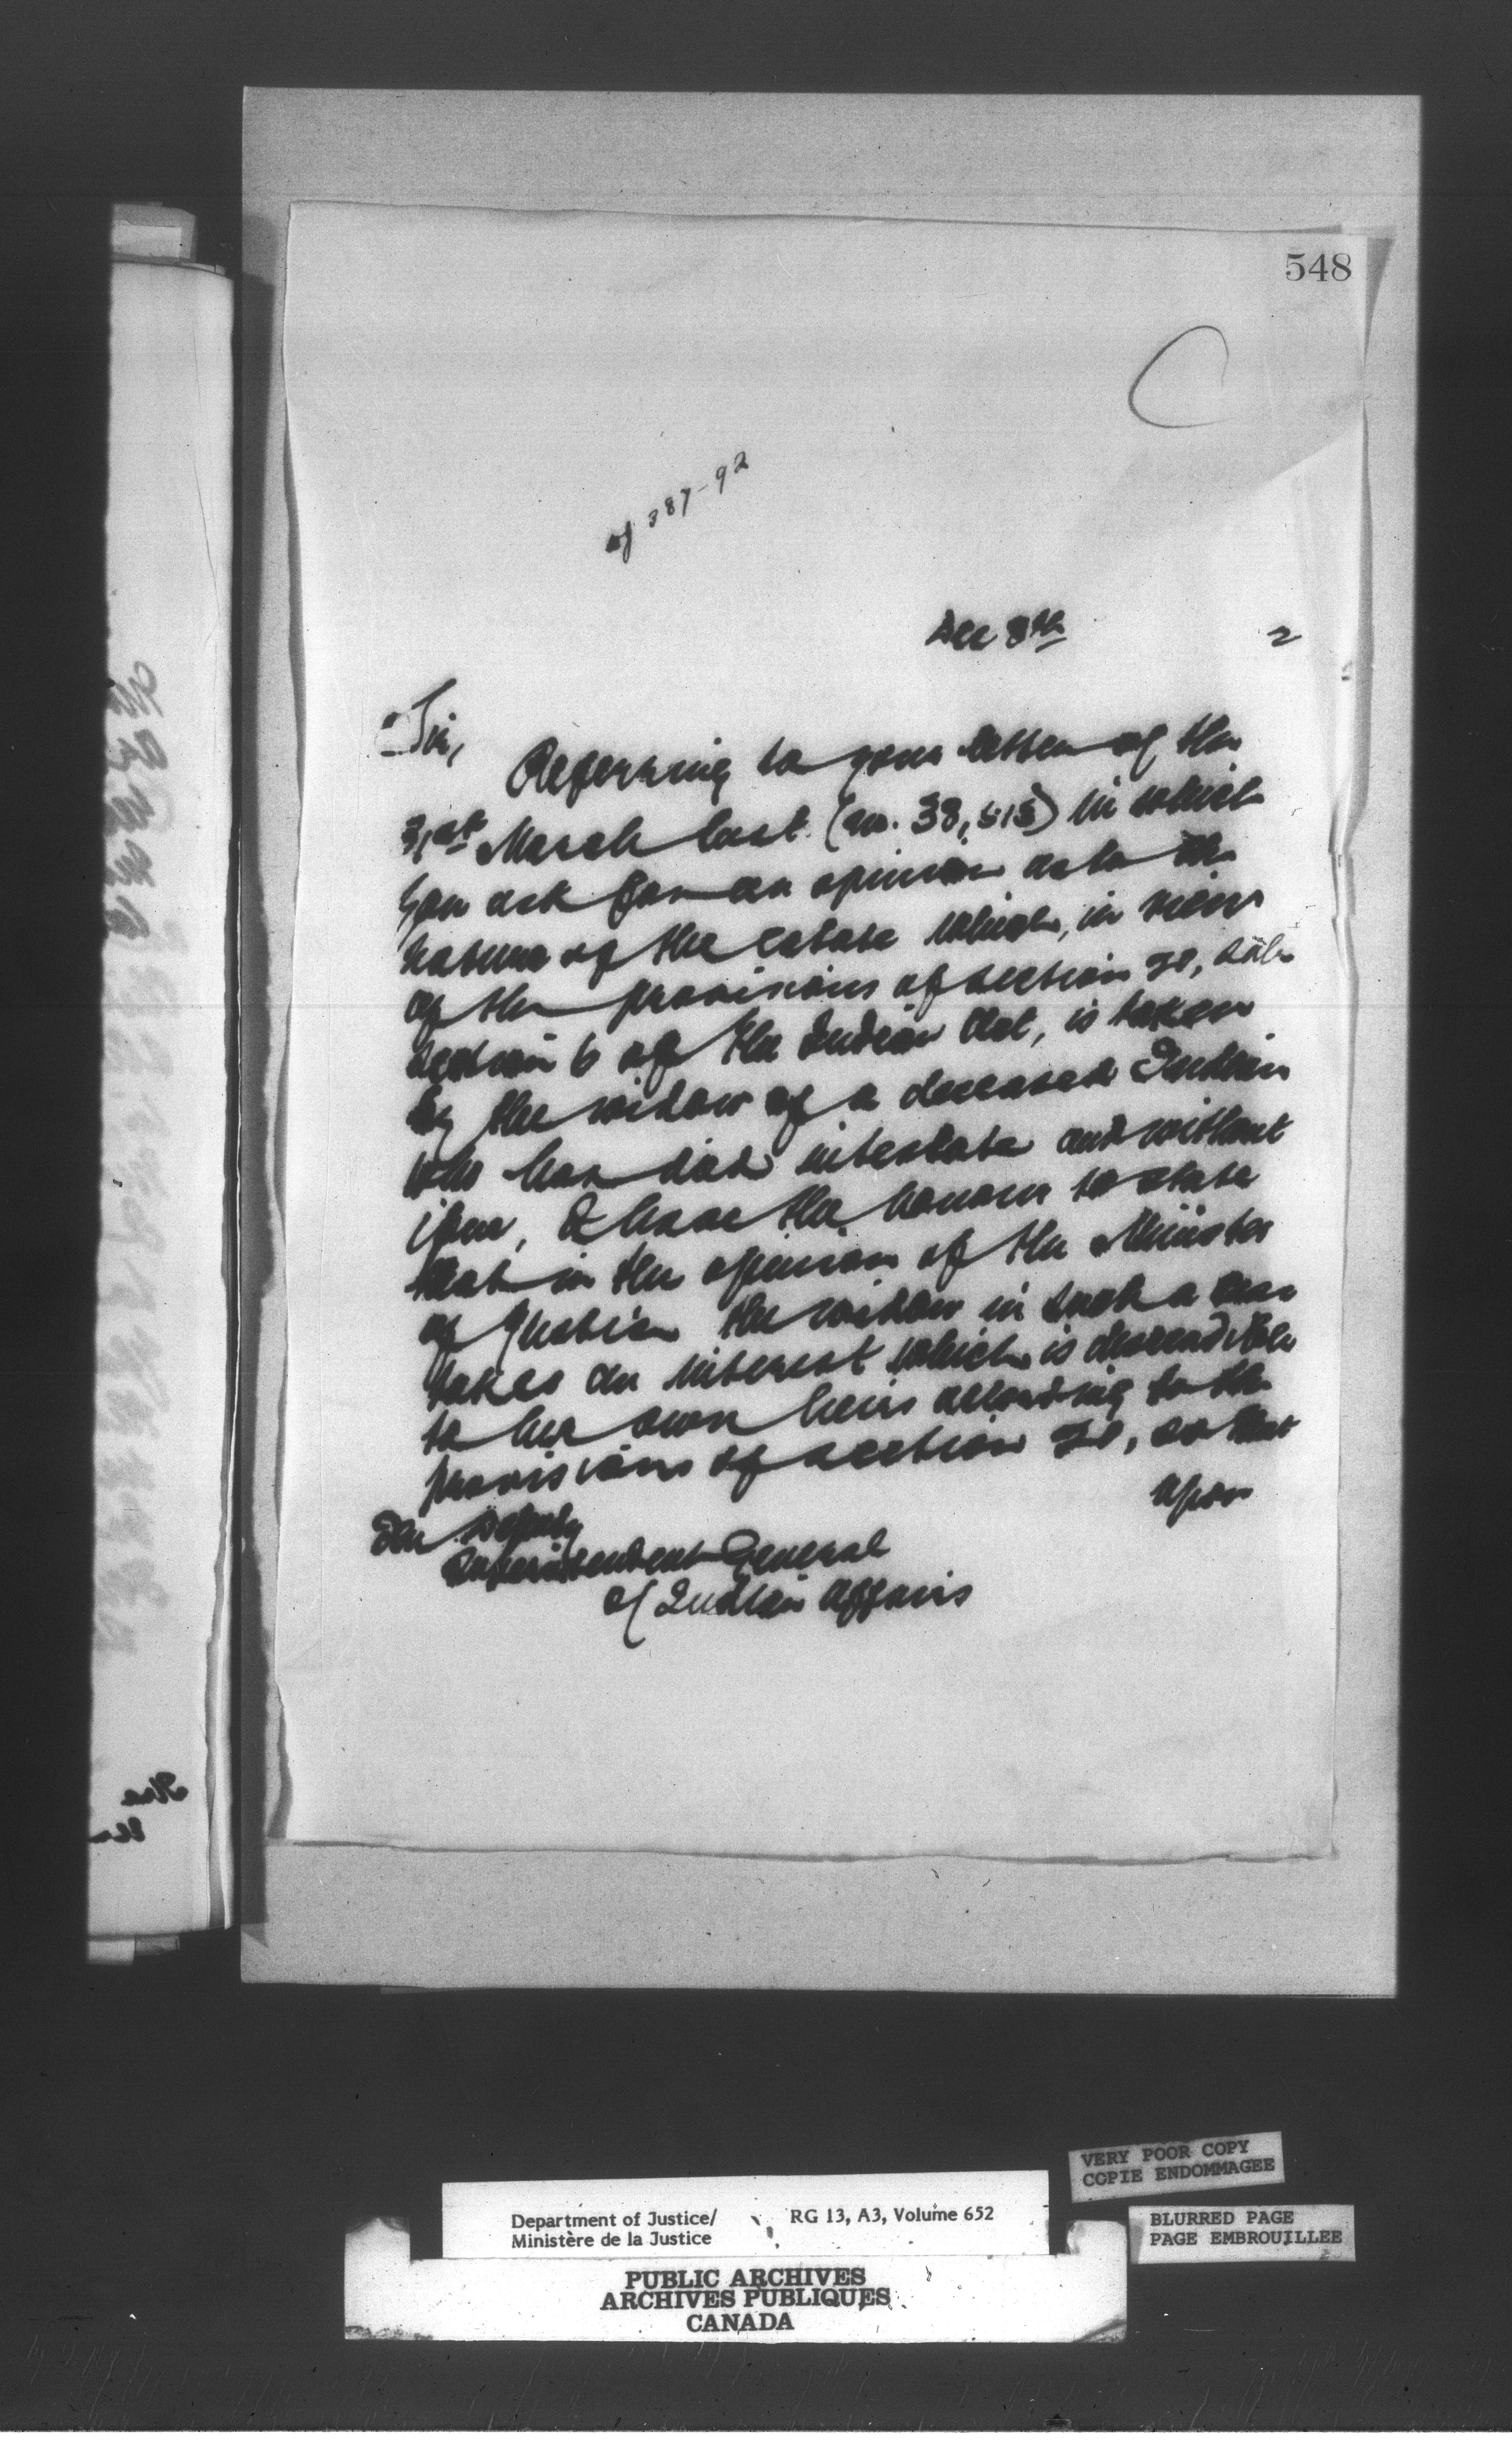 548
C
of 387-92
Dec 8th 2
Sir,
Referring to your letter of the
31st March last (no. 38,515) in which
you ask for an opinion as to the
nature of the estate which, in view
of the provisions of section 20, sub-
section 6 of the Indian Act, is taken
by the widow of a deceased Indian
who has died intestate and without
issue, I have the honour to state
that in the opinion of the Minister
of Justice the widow in such a case
takes an interest which is descendible
to her own heirs according to the
provisions of section 20, so that
upon
The Deputy
Superintendent General
of Indian Affairs
VERY POOR COPY
COPIE ENDOMMAGEE
BLURRED PAGE
PAGE EMBROUILLEE
Department of Justice/ RG 13, A3, Volume 652
Ministère de la Justice
PUBLIC ARCHIVES
ARCHIVES PUBLIQUES
CANADA